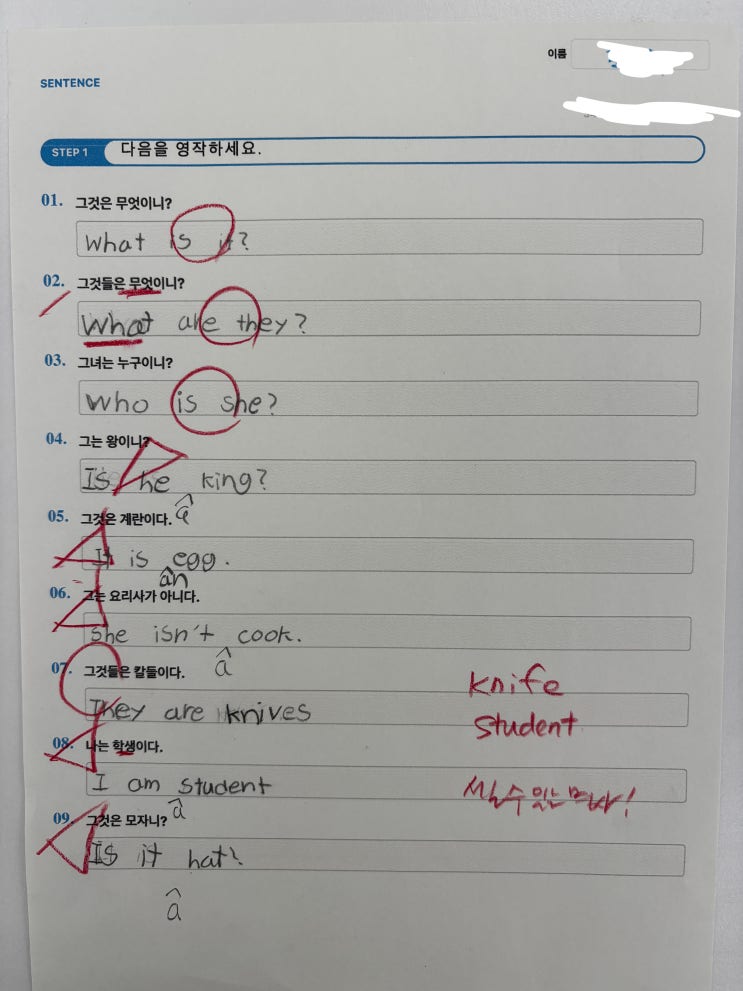 이름
SENTENCE
STEP 1 다음을 영작하세요.
01. 그것은 무엇이니?
What is it?
02. 그것들은 무엇이니?
What are they?
03. 그녀는 누구이니?
Who is she?
04. 그는 왕이니?
Is he king?
a
05. 그것은 계란이다.
It is egg.
an
06. 그는 요리사가 아니다.
she isn't cook.
a
07. 그것들은 칼들이다.
They are knives
knife
student
08. 나는 학생이다.
I am student
a
셀수 있는 명사!
09. 그것은 모자니?
Is it hat?
a